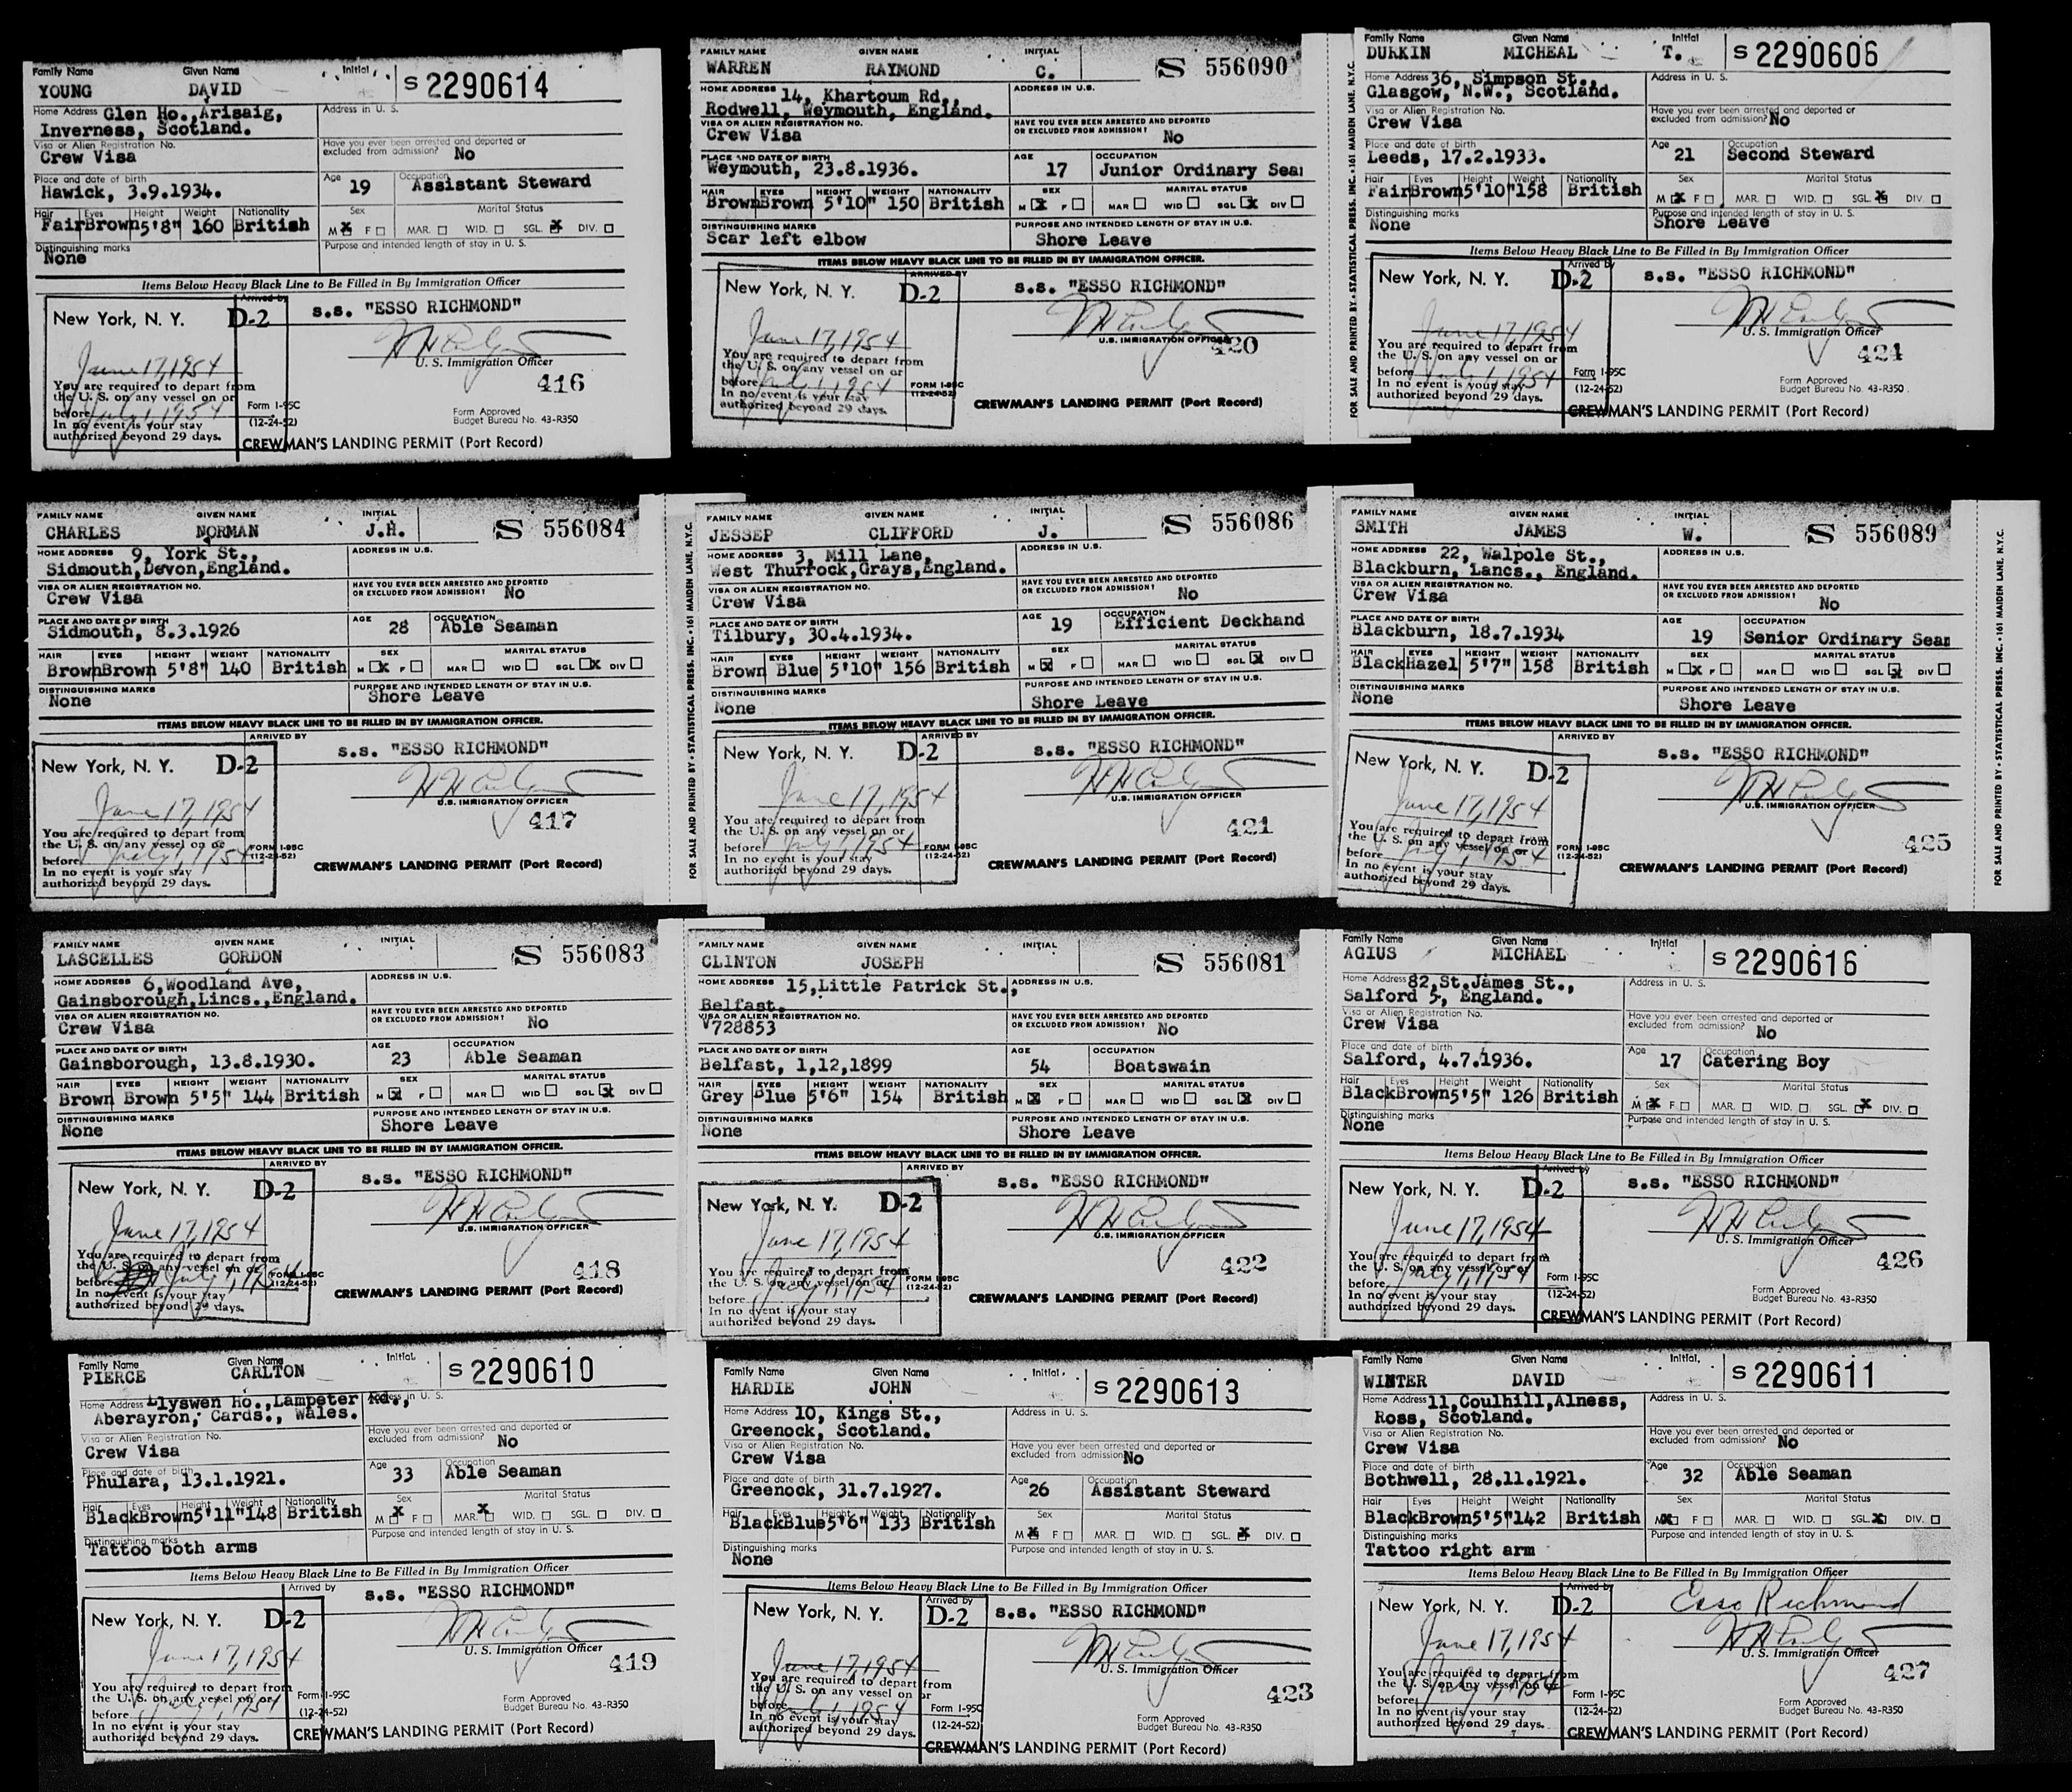 Family Name Given Name Initial
YOUNG DAVID S 2290614
Home Address Glen Ho.,Arisaig, Address in U. S.
Inverness, Scotland.
Visa or Alien Registration No. Have you ever been arrested and deported or
Crew Visa excluded from admission? No
Place and date of birth Age Occupation
Hawick, 3.9.1934. 19 Assistant Steward
Hair Eyes Height Weight Nationality Sex Marital Status
Fair Brown 5'8" 160 British M X F MAR. WID. SGL. X DIV.
Distinguishing marks Purpose and intended length of stay in U. S.
None
Items Below Heavy Black Line to Be Filled in By Immigration Officer
Arrived by
New York, N. Y. D-2 s.s. "ESSO RICHMOND"
June 17, 1954
U. S. Immigration Officer
You are required to depart from 416
the U. S. on any vessel on or
before July 1, 1954 Form I-95C Form Approved
In no event is your stay (12-24-52) Budget Bureau No. 43-R350
authorized beyond 29 days.
CREWMAN'S LANDING PERMIT (Port Record)
FAMILY NAME GIVEN NAME INITIAL
WARREN RAYMOND C. S 556090
HOME ADDRESS 14, Khartoum Rd., ADDRESS IN U.S.
Rodwell, Weymouth, England.
VISA OR ALIEN REGISTRATION NO. HAVE YOU EVER BEEN ARRESTED AND DEPORTED
Crew Visa OR EXCLUDED FROM ADMISSION? No
PLACE AND DATE OF BIRTH AGE OCCUPATION
Weymouth, 23.8.1936. 17 Junior Ordinary Sea
HAIR EYES HEIGHT WEIGHT NATIONALITY SEX MARITAL STATUS
Brown Brown 5'10" 150 British M X F MAR WID SGL X DIV
DISTINGUISHING MARKS PURPOSE AND INTENDED LENGTH OF STAY IN U.S.
Scar left elbow Shore Leave
ITEMS BELOW HEAVY BLACK LINE TO BE FILLED IN BY IMMIGRATION OFFICER.
ARRIVED BY
New York, N. Y. D-2 s.s. "ESSO RICHMOND"
June 17, 1954
U.S. IMMIGRATION OFFICER
You are required to depart from 420
the U. S. on any vessel on or
before July 1, 1954 FORM I-95C
In no event is your stay (12-24-52)
authorized beyond 29 days.
CREWMAN'S LANDING PERMIT (Port Record)
FOR SALE AND PRINTED BY • STATISTICAL PRESS. INC. • 161 MAIDEN LANE. N.Y.C.
Family Name Given Name Initial
DURKIN MICHEAL T. S 2290606
Home Address 36, Simpson St., Address in U. S.
Glasgow, N.W., Scotland.
Visa or Alien Registration No. Have you ever been arrested and deported or
Crew Visa excluded from admission? No
Place and date of birth Age Occupation
Leeds, 17.2.1933. 21 Second Steward
Hair Eyes Height Weight Nationality Sex Marital Status
Fair Brown 5'10" 158 British M X F MAR. WID. SGL. X DIV.
Distinguishing marks Purpose and intended length of stay in U. S.
None Shore Leave
Items Below Heavy Black Line to Be Filled in By Immigration Officer
Arrived by
New York, N. Y. D-2 s.s. "ESSO RICHMOND"
June 17, 1954
U. S. Immigration Officer
You are required to depart from 424
the U. S. on any vessel on or
before July 1, 1954 Form I-95C Form Approved
In no event is your stay (12-24-52) Budget Bureau No. 43-R350
authorized beyond 29 days.
CREWMAN'S LANDING PERMIT (Port Record)
FAMILY NAME GIVEN NAME INITIAL
CHARLES NORMAN J.H. S 556084
HOME ADDRESS 9, York St., ADDRESS IN U.S.
Sidmouth,Devon,England.
VISA OR ALIEN REGISTRATION NO. HAVE YOU EVER BEEN ARRESTED AND DEPORTED
Crew Visa OR EXCLUDED FROM ADMISSION? No
PLACE AND DATE OF BIRTH AGE OCCUPATION
Sidmouth, 8.3.1926 28 Able Seaman
HAIR EYES HEIGHT WEIGHT NATIONALITY SEX MARITAL STATUS
Brown Brown 5'8" 140 British M X F MAR WID SGL X DIV
DISTINGUISHING MARKS PURPOSE AND INTENDED LENGTH OF STAY IN U.S.
None Shore Leave
ITEMS BELOW HEAVY BLACK LINE TO BE FILLED IN BY IMMIGRATION OFFICER.
ARRIVED BY
New York, N. Y. D-2 s.s. "ESSO RICHMOND"
June 17, 1954
U.S. IMMIGRATION OFFICER
You are required to depart from 417
the U. S. on any vessel on or
before July 1, 1954 FORM I-95C
In no event is your stay (12-24-52)
authorized beyond 29 days.
CREWMAN'S LANDING PERMIT (Port Record)
FOR SALE AND PRINTED BY • STATISTICAL PRESS. INC. • 161 MAIDEN LANE. N.Y.C.
FAMILY NAME GIVEN NAME INITIAL
JESSEP CLIFFORD J. S 556086
HOME ADDRESS 3, Mill Lane, ADDRESS IN U.S.
West Thurrock,Grays,England.
VISA OR ALIEN REGISTRATION NO. HAVE YOU EVER BEEN ARRESTED AND DEPORTED
Crew Visa OR EXCLUDED FROM ADMISSION? No
PLACE AND DATE OF BIRTH AGE OCCUPATION
Tilbury, 30.4.1934. 19 Efficient Deckhand
HAIR EYES HEIGHT WEIGHT NATIONALITY SEX MARITAL STATUS
Brown Blue 5'10" 156 British M X F MAR WID SGL X DIV
DISTINGUISHING MARKS PURPOSE AND INTENDED LENGTH OF STAY IN U.S.
None Shore Leave
ITEMS BELOW HEAVY BLACK LINE TO BE FILLED IN BY IMMIGRATION OFFICER.
ARRIVED BY
New York, N. Y. D-2 s.s. "ESSO RICHMOND"
June 17, 1954
U.S. IMMIGRATION OFFICER
You are required to depart from 421
the U. S. on any vessel on or
before July 1, 1954 FORM I-95C
In no event is your stay (12-24-52)
authorized beyond 29 days.
CREWMAN'S LANDING PERMIT (Port Record)
FAMILY NAME GIVEN NAME INITIAL
SMITH JAMES W. S 556089
HOME ADDRESS 22, Walpole St., ADDRESS IN U.S.
Blackburn, Lancs., England.
VISA OR ALIEN REGISTRATION NO. HAVE YOU EVER BEEN ARRESTED AND DEPORTED
Crew Visa OR EXCLUDED FROM ADMISSION? No
PLACE AND DATE OF BIRTH AGE OCCUPATION
Blackburn, 18.7.1934 19 Senior Ordinary Sea
HAIR EYES HEIGHT WEIGHT NATIONALITY SEX MARITAL STATUS
Black Hazel 5'7" 158 British M X F MAR WID SGL X DIV
DISTINGUISHING MARKS PURPOSE AND INTENDED LENGTH OF STAY IN U.S.
None Shore Leave
ITEMS BELOW HEAVY BLACK LINE TO BE FILLED IN BY IMMIGRATION OFFICER.
ARRIVED BY
New York, N. Y. D-2 s.s. "ESSO RICHMOND"
June 17, 1954
U.S. IMMIGRATION OFFICER
You are required to depart from 425
the U. S. on any vessel on or
before July 1, 1954 FORM I-95C
In no event is your stay (12-24-52)
authorized beyond 29 days.
CREWMAN'S LANDING PERMIT (Port Record)
FOR SALE AND PRINTED BY • STATISTICAL PRESS. INC. • 161 MAIDEN LANE. N.Y.C.
FAMILY NAME GIVEN NAME INITIAL
LASCELLES GORDON S 556083
HOME ADDRESS 6,Woodland Ave, ADDRESS IN U.S.
Gainsborough,Lincs.,England.
VISA OR ALIEN REGISTRATION NO. HAVE YOU EVER BEEN ARRESTED AND DEPORTED
Crew Visa OR EXCLUDED FROM ADMISSION? No
PLACE AND DATE OF BIRTH AGE OCCUPATION
Gainsborough, 13.8.1930. 23 Able Seaman
HAIR EYES HEIGHT WEIGHT NATIONALITY SEX MARITAL STATUS
Brown Brown 5'5" 144 British M X F MAR WID SGL X DIV
DISTINGUISHING MARKS PURPOSE AND INTENDED LENGTH OF STAY IN U.S.
None Shore Leave
ITEMS BELOW HEAVY BLACK LINE TO BE FILLED IN BY IMMIGRATION OFFICER.
ARRIVED BY
New York, N. Y. D-2 s.s. "ESSO RICHMOND"
June 17, 1954
U.S. IMMIGRATION OFFICER
You are required to depart from 418
the U. S. on any vessel on or
before July 1, 1954 FORM I-95C
In no event is your stay (12-24-52)
authorized beyond 29 days.
CREWMAN'S LANDING PERMIT (Port Record)
FAMILY NAME GIVEN NAME INITIAL
CLINTON JOSEPH S 556081
HOME ADDRESS 15,Little Patrick St., ADDRESS IN U.S.
Belfast.
VISA OR ALIEN REGISTRATION NO. HAVE YOU EVER BEEN ARRESTED AND DEPORTED
V728853 OR EXCLUDED FROM ADMISSION? No
PLACE AND DATE OF BIRTH AGE OCCUPATION
Belfast, 1,12,1899 54 Boatswain
HAIR EYES HEIGHT WEIGHT NATIONALITY SEX MARITAL STATUS
Grey Blue 5'6" 154 British M X F MAR WID SGL X DIV
DISTINGUISHING MARKS PURPOSE AND INTENDED LENGTH OF STAY IN U.S.
None Shore Leave
ITEMS BELOW HEAVY BLACK LINE TO BE FILLED IN BY IMMIGRATION OFFICER.
ARRIVED BY
New York, N. Y. D-2 s.s. "ESSO RICHMOND"
June 17, 1954
U.S. IMMIGRATION OFFICER
You are required to depart from 422
the U. S. on any vessel on or
before July 1, 1954 FORM I-95C
In no event is your stay (12-24-52)
authorized beyond 29 days.
CREWMAN'S LANDING PERMIT (Port Record)
Family Name Given Name Initial
AGIUS MICHAEL S 2290616
Home Address 82,St.James St., Address in U. S.
Salford 5, England.
Visa or Alien Registration No. Have you ever been arrested and deported or
Crew Visa excluded from admission? No
Place and date of birth Age Occupation
Salford, 4.7.1936. 17 Catering Boy
Hair Eyes Height Weight Nationality Sex Marital Status
Black Brown 5'5" 126 British M X F MAR. WID. SGL. X DIV.
Distinguishing marks Purpose and intended length of stay in U. S.
None
Items Below Heavy Black Line to Be Filled in By Immigration Officer
Arrived by
New York, N. Y. D-2 s.s. "ESSO RICHMOND"
June 17, 1954
U. S. Immigration Officer
You are required to depart from 426
the U. S. on any vessel on or
before July 1, 1954 Form I-95C Form Approved
In no event is your stay (12-24-52) Budget Bureau No. 43-R350
authorized beyond 29 days.
CREWMAN'S LANDING PERMIT (Port Record)
Family Name Given Name Initial
PIERCE CARLTON S 2290610
Home Address Llyswen Ho.,Lampeter Rd., Address in U. S.
Aberayron, Cards., Wales.
Visa or Alien Registration No. Have you ever been arrested and deported or
Crew Visa excluded from admission? No
Place and date of birth Age Occupation
Phulara, 13.1.1921. 33 Able Seaman
Hair Eyes Height Weight Nationality Sex Marital Status
Black Brown 5'11" 148 British M X F MAR. X WID. SGL. DIV.
Distinguishing marks Purpose and intended length of stay in U. S.
Tattoo both arms
Items Below Heavy Black Line to Be Filled in By Immigration Officer
Arrived by
New York, N. Y. D-2 s.s. "ESSO RICHMOND"
June 17, 1954
U. S. Immigration Officer
You are required to depart from 419
the U. S. on any vessel on or
before July 1, 1954 Form I-95C Form Approved
In no event is your stay (12-24-52) Budget Bureau No. 43-R350
authorized beyond 29 days.
CREWMAN'S LANDING PERMIT (Port Record)
Family Name Given Name Initial
HARDIE JOHN S 2290613
Home Address 10, Kings St., Address in U. S.
Greenock, Scotland.
Visa or Alien Registration No. Have you ever been arrested and deported or
Crew Visa excluded from admission No
Place and date of birth Age Occupation
Greenock, 31.7.1927. 26 Assistant Steward
Hair Eyes Height Weight Nationality Sex Marital Status
Black Blue 5'6" 133 British M X F MAR. WID. SGL. X DIV.
Distinguishing marks Purpose and intended length of stay in U. S.
None
Items Below Heavy Black Line to Be Filled in By Immigration Officer
Arrived by
New York, N. Y. D-2 s.s. "ESSO RICHMOND"
June 17, 1954
U. S. Immigration Officer
You are required to depart from 423
the U. S. on any vessel on or
before July 1, 1954 Form I-95C Form Approved
In no event is your stay (12-24-52) Budget Bureau No. 43-R350
authorized beyond 29 days.
CREWMAN'S LANDING PERMIT (Port Record)
Family Name Given Name Initial
WINTER DAVID S 2290611
Home Address 11,Coulhill,Alness, Address in U. S.
Ross, Scotland.
Visa or Alien Registration No. Have you ever been arrested and deported or
Crew Visa excluded from admission? No
Place and date of birth Age Occupation
Bothwell, 28.11.1921. 32 Able Seaman
Hair Eyes Height Weight Nationality Sex Marital Status
Black Brown 5'5" 142 British M X F MAR. WID. SGL. X DIV.
Distinguishing marks Purpose and intended length of stay in U. S.
Tattoo right arm
Items Below Heavy Black Line to Be Filled in By Immigration Officer
Arrived by
New York, N. Y. D-2 Esso Richmond
June 17, 1954
U. S. Immigration Officer
You are required to depart from 427
the U. S. on any vessel on or
before July 1, 1954 Form I-95C Form Approved
In no event is your stay (12-24-52) Budget Bureau No. 43-R350
authorized beyond 29 days.
CREWMAN'S LANDING PERMIT (Port Record)